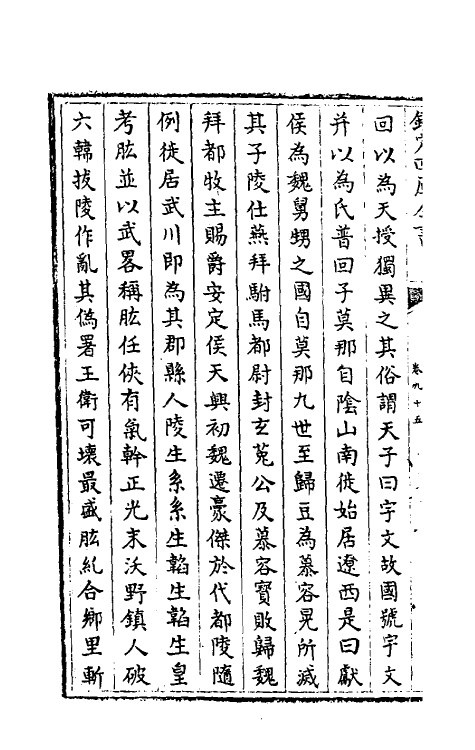 欽定四庫全書
卷九十五
回以為天授獨異之其俗謂天子曰宇文故國號宇文
并以為氏普回子莫那自隂山南徙始居遼西是曰獻
侯為魏舅甥之國自莫那九世至歸豆為慕容晃所滅
其子陵仕燕拜駙馬都尉封玄菟公及慕容寳敗歸魏
拜都牧主賜爵安定侯天興初魏遷豪傑於代都陵隨
例徙居武川即為其郡縣人陵生系系生韜韜生皇
考肱並以武畧稱肱任俠有氣幹正光末沃野鎮人破
六韓拔陵作亂其偽署王衛可壊最盛肱糺合鄉里斬